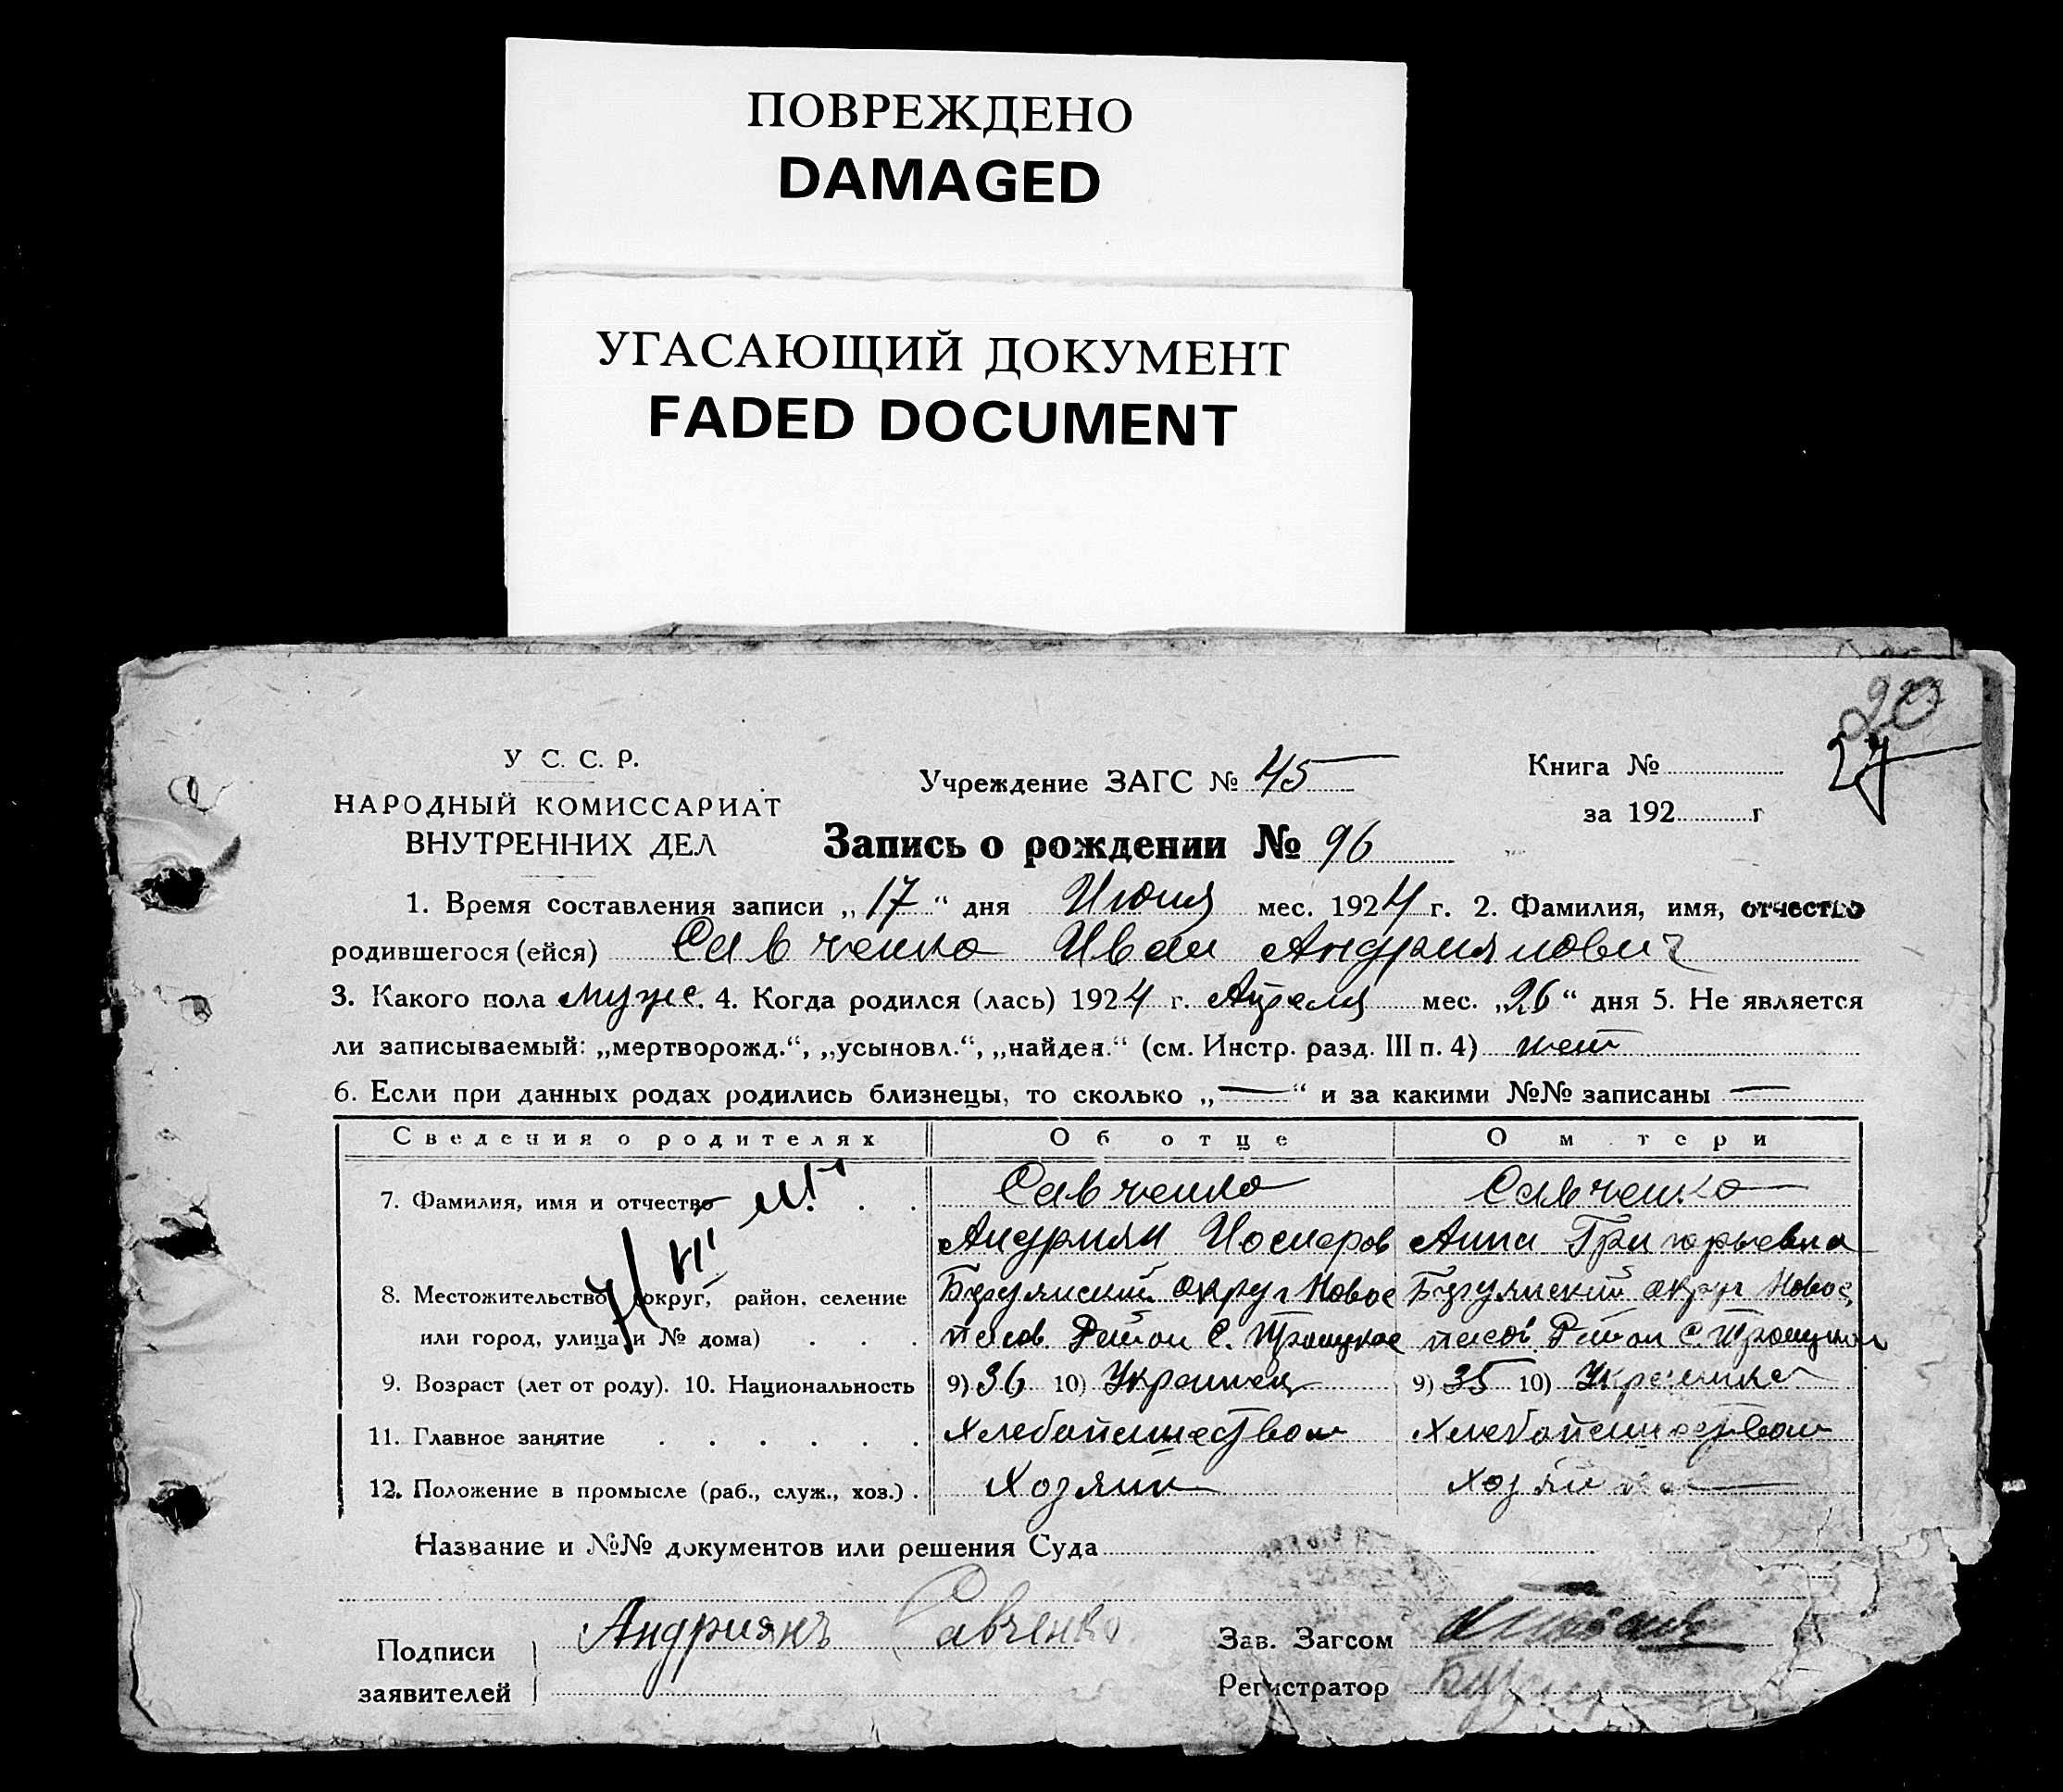 ПОВРЕЖДЕНО
DAMAGED
УГАСАЮЩИЙ ДОКУМЕНТ
FADED DOCUMENT
20
27
У С. С. Р.
НАРОДНЫЙ КОМИССАРИАТ
ВНУТРЕННИХ ДЕЛ
Учреждение ЗАГС № 45
Книга №
за 192 г
Запись о рождении № 96
1. Время составления записи „17" дня Июня мес. 1924 г. 2. Фамилия, имя, отчество
родившегося (ейся) Савченко Иван Андриянович
3. Какого пола мужс. 4. Когда родился (лась) 1924 г. Апреля мес. „26" дня 5. Не является
ли записываемый: „мертворожд.", „усыновл.", „найден." (см. Инстр. разд. III п. 4) нет
6. Если при данных родах родились близнецы, то сколько „—" и за какими №№ записаны —
Сведения о родителях Об отце О м тери
7. Фамилия, имя и отчество Савченко Савченко
Андриян Анна Григорьевна
8. Местожительство (округ, район, селение округ Новое округ Новое
или город, улица и № дома) Район С. Троицкое Район С. Троицкое
9. Возраст (лет от роду). 10. Национальность 9) 36 10) Украинец 9) 35 10) Украинка
11. Главное занятие Хлебопашеством Хлебопашеством
12. Положение в промысле (раб., служ., хоз.) Хозяин Хозяйка
Название и №№ документов или решения Суда
Подписи заявителей Андриянъ Савченко
Зав. Загсом
Регистратор